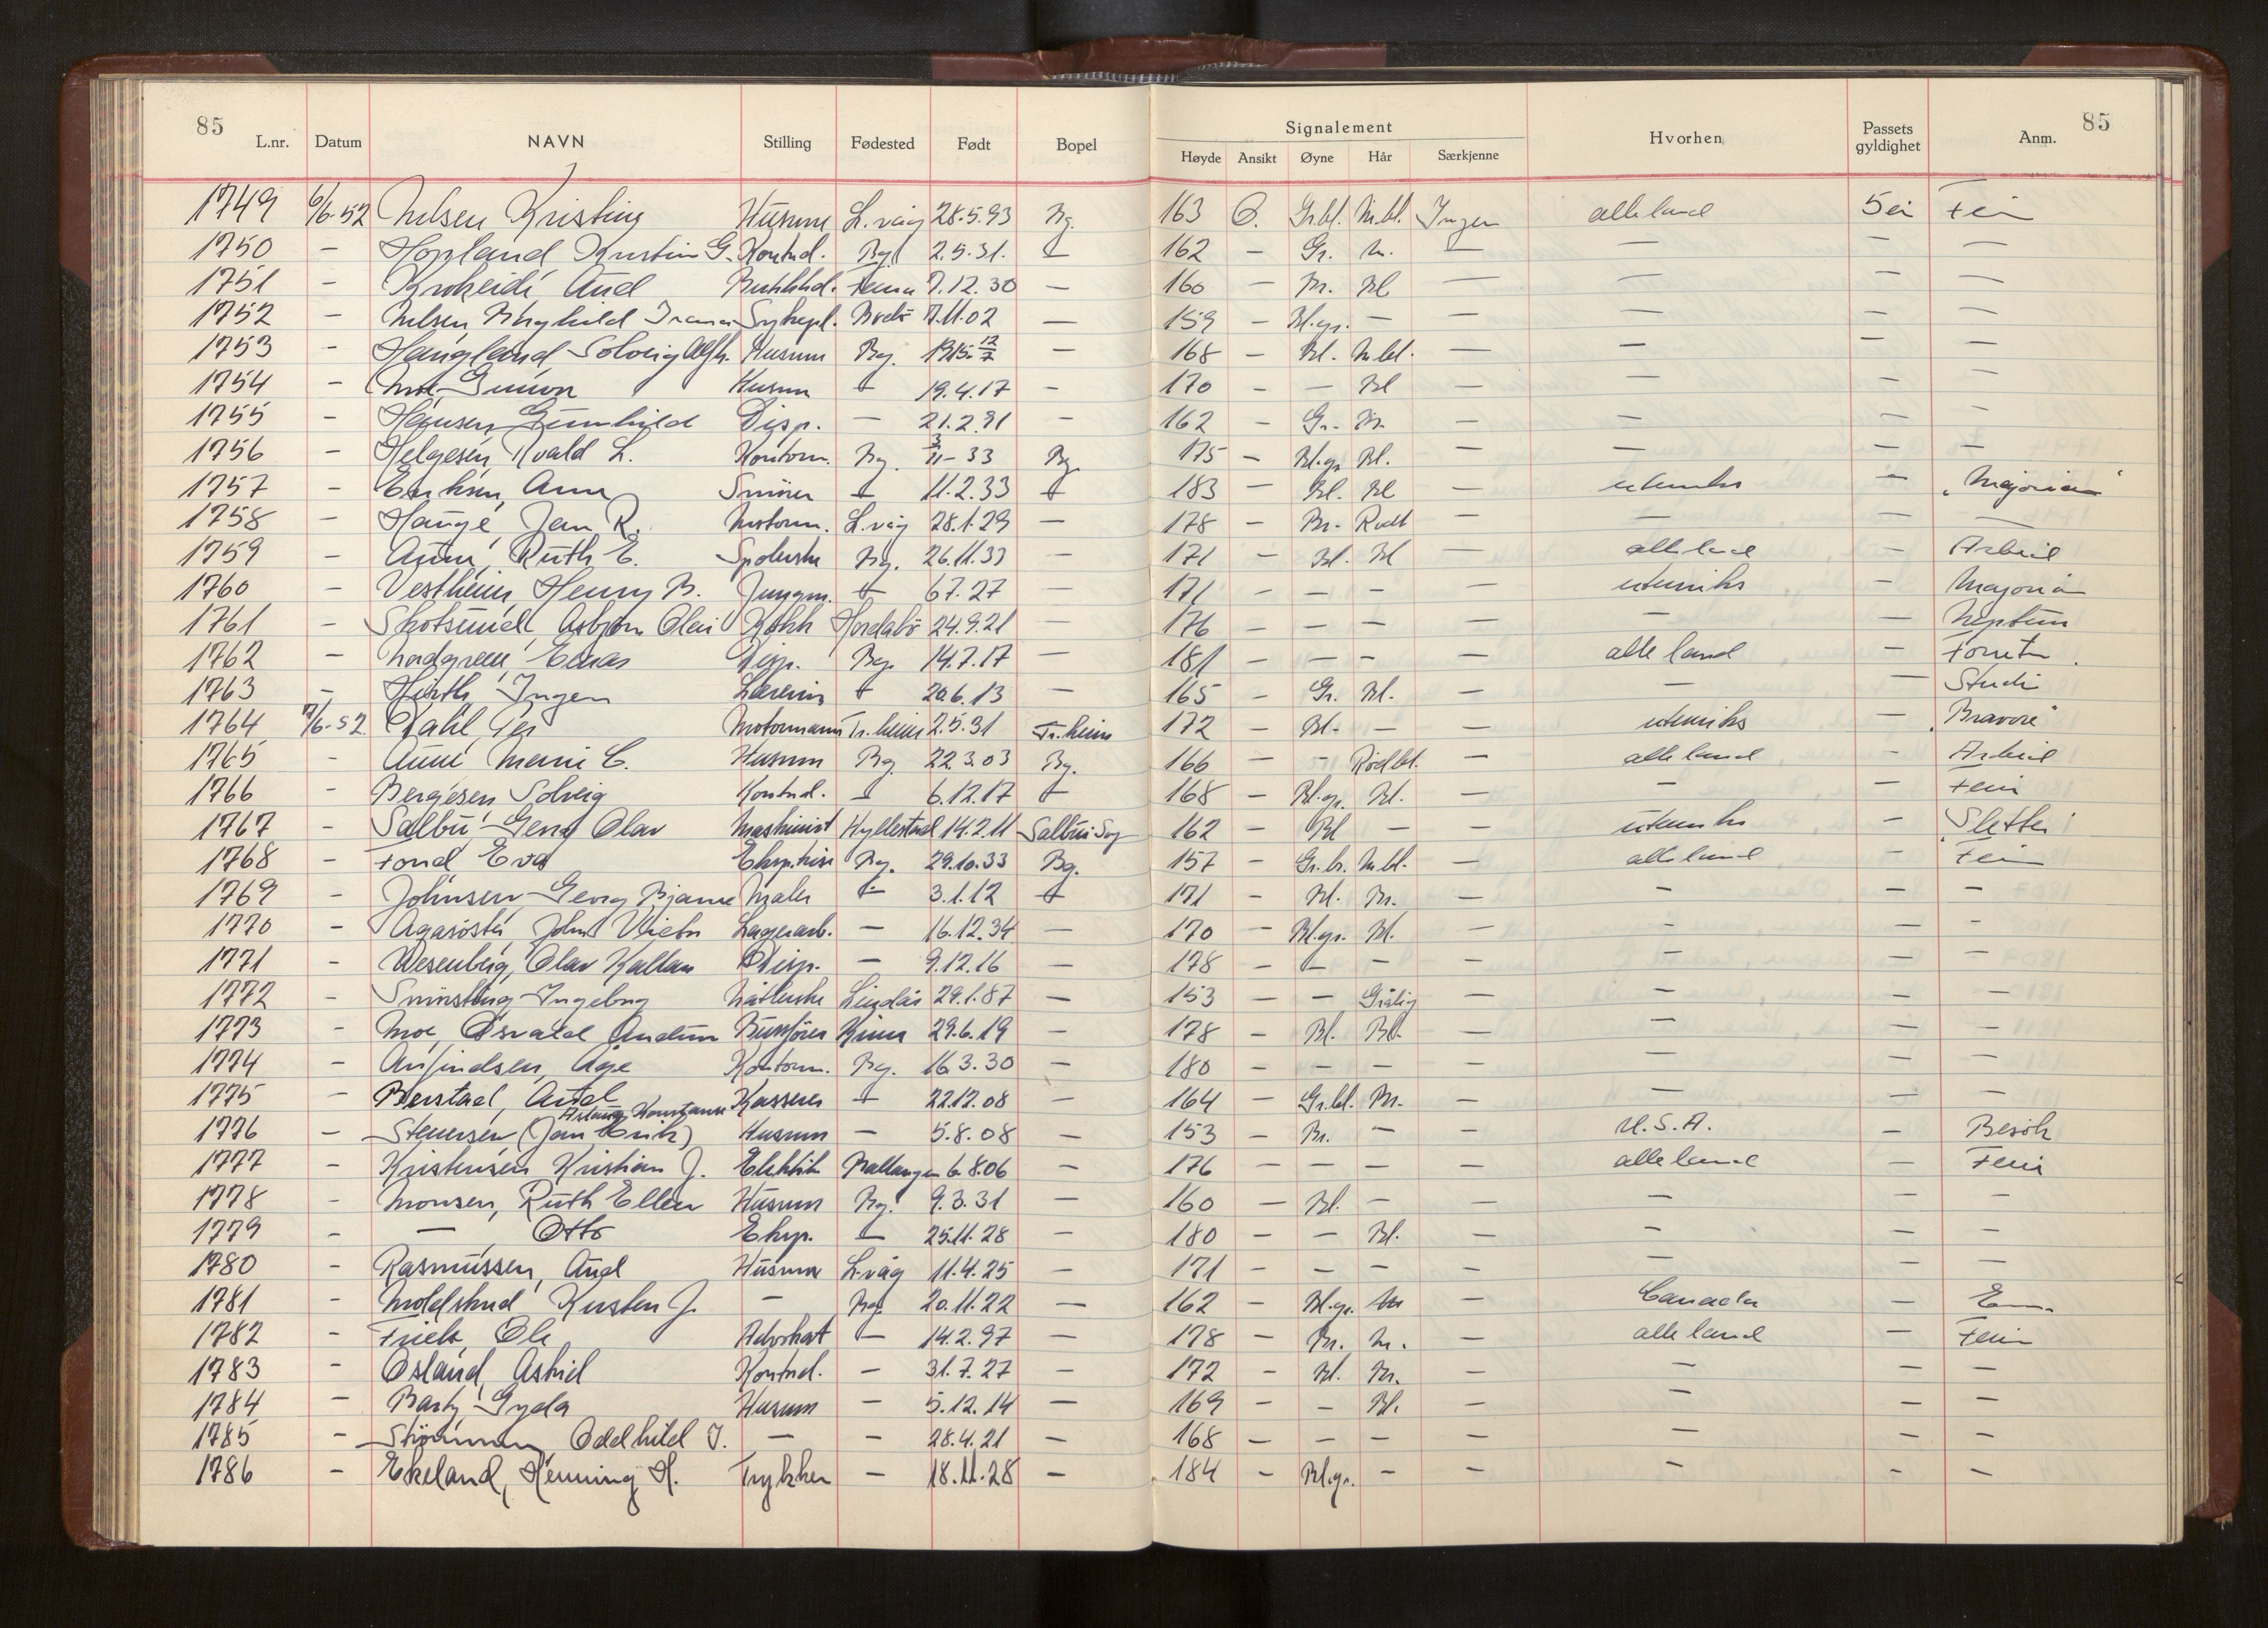 85 85
L.nr. Datum NAVN Stilling Fødested Født Bopel Signalement Høyde Ansikt Øyne Hår Særkjenne Hvorhen Passets gyldighet Anm.
1749 6/6-52 Nilsen Kristine Husmor L.våg 28.5.93 Bg. 163 O. Gr.bl. M.bl. Ingen alle land 5 Feri
1750 - Hopland Kirsten G. Kontord. Bg. 2.5.31. - 162 - Gr. M. - - - -
1751 - Krokeide Aud 7.12.30 - 160 - Br. Bl - - - -
1752 - Nilsen Sykepl. Bodø 7.11.02 - 159 - Bl.gr. - - - - -
1753 - Haugland Solveig Alfh. Husmor Bg. 1915 12/7 - 168 - Bl. M.bl. - - - -
1754 - Moe Gunvor Husmor - 19.4.17 - 170 - - Bl - - - -
1755 - Hansen Gunhild Disp. - 21.2.91 - 162 - Gr. Br. - - -
1756 - Helgesen, Roald L. Kontorm. Bg. 3/11-33 Bg. 175 - Bl.gr. Bl. - - - -
1757 - Eriksen, Arne Smører - 11.2.33 - 183 - Bl. Bl - utenriks - "Majorian"
1758 - Hauge, Jan R. Motorm. L.våg 28.1.29 - 178 - Br. Rødt - - - -
1759 - Aune, Ruth E. Spolerske Bg. 26.11.33 - 171 - Bl. Bl - alle land - Arbeid
1760 - Vestheim Henry B. Jungm. - 6.7.27 - 171 - - - - utenriks - Majorian
1761 - Skotsund, Asbjørn Olai Kokk Hordabø 24.9.21 - 176 - - - - - - Neptun
1762 - Nordgreen, Disp. Bg. 14.7.17 - 181 - - - - alle land - Forretn.
1763 - Hirth Inger Lærerin - 20.6.13 - 165 - Gr. Bl. - - - Studi
1764 7/6-52 Dahl, Per Motormann Tr.heim 2.5.31 Tr.heim 172 - Bl. - - utenriks - "Bravore"
1765 - Aune Marie C. Husmor Bg. 22.3.03 Bg. 166 - - Rødbl. - alle land - Arbeid
1766 - Bergesen Solveig Kontord. - 6.12.17 - 168 - Bl.gr. Bl. - - - Feri
1767 - Salbu Georg Olav Maskinist Hyllestad 14.2.11 Salbu i Sogn 162 - Bl - - utenriks - "Sletter"
1768 - Fond Eva Eksp.trise Bg. 29.10.33 Bg. 157 - Gr.br. M.bl. - alle land - Feri
1769 - Johnsen Georg Bjarne Maler - 3.1.12 - 171 - Bl. Br. - - - -
1770 - Agasøster John Victor Lagerarb. - 16.12.34 - 170 - Bl.gr. Bl. - - - -
1771 - Wesenberg, Olav Kallan Disp. - 9.12.16 - 178 - - - - - - -
1772 - Ingeborg Lindås 29.1.87 - 153 - - Grålig - - - -
1773 - Moe, Osvald Audun Bussfører Kinn 29.6.19 - 178 - Bl. Bl. - - - -
1774 - Arfindsen, Åge Kontorm. Bg. 16.3.30 - 180 - - - - - - -
1775 - Berstad, Kasserer - 22.12.08 - 164 - Gr.bl. Br. - - - -
1776 - Aslaug Konstanse Stenersen (Jan Erik) Husmor - 5.8.08 - 153 - Br. - - U.S.A. - Besøk
1777 - Kristensen Kristian J. Elektrik Ballangen 6.8.06 - 176 - - - - alle land - Feri
1778 - Monsen, Ruth Ellen Husmor Bg. 9.3.31 - 160 - Bl. - - - - -
1779 - - Otto Eksp. - 25.11.28 - 180 - - Bl. - - - -
1780 - Rasmussen, Aud Husmor L.våg 11.4.25 - 171 - - - - - - -
1781 - Moldskred Kirsten J. - Bg. 20.11.22 - 162 - Bl.gr. M - Canada -
1782 - Frich, Ole Advokat - 14.2.97 - 178 - Br. M. - alle land - Feri
1783 - Østand, Astrid Kontord. - 31.7.27 - 172 - Bl. Br. - - - -
1784 - Gyda Husmor - 5.12.14 - 169 - - Bl. - - - -
1785 - Oddhild J. - - 28.4.21 - 168 - - - - - - -
1786 - Ekeland, Henning H. Trykker - 18.11.28 - 184 - Bl.gr. - - - - -